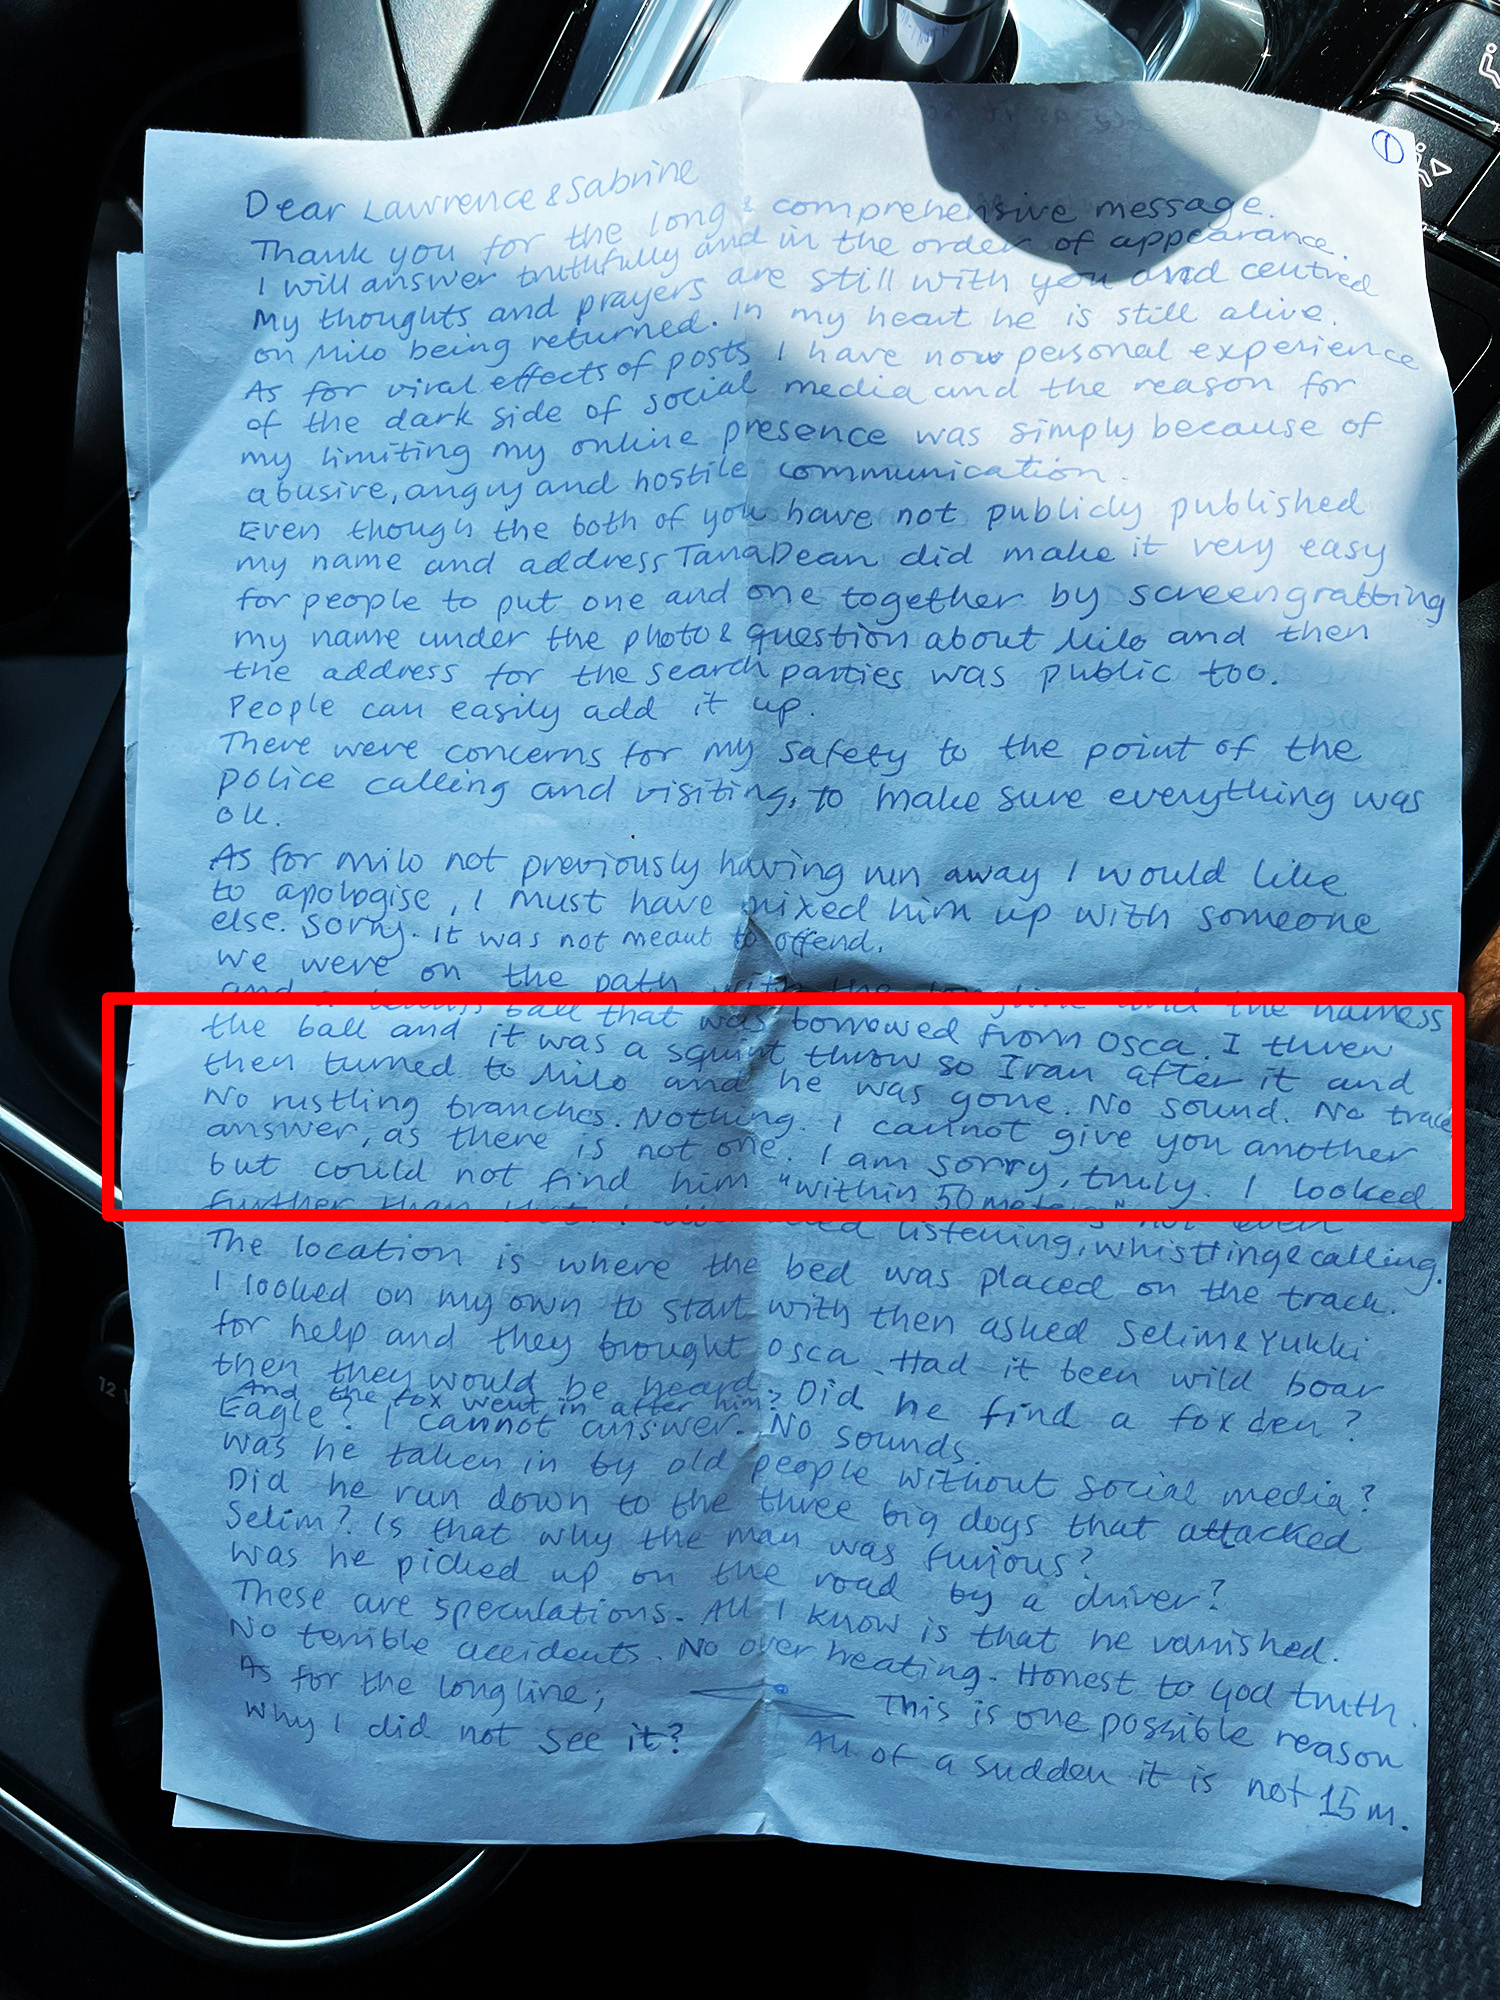 ①
Dear Lawrence & Sabrine
Thank you for the long & comprehensive message.
I will answer truthfully and in the order of appearance.
My thoughts and prayers are still with you and centred
on Milo being returned. In my heart he is still alive.
As for viral effects of posts I have now personal experience
of the dark side of social media and the reason for
my limiting my online presence was simply because of
abusive, angry and hostile communication.
Even though the both of you have not publicly published
my name and address Tana Dean did make it very easy
for people to put one and one together by screengrabbing
my name under the photo & question about Milo and then
the address for the search parties was public too.
People can easily add it up.
There were concerns for my safety to the point of the
police calling and visiting, to make sure everything was
ok.
As for Milo not previously having run away I would like
to apologise, I must have mixed him up with someone
else. Sorry. It was not meant to offend.
We were on the path with the longline and the harness
and a tennis ball that was borrowed from Osca. I threw
the ball and it was a squint throw so I ran after it and
then turned to Milo and he was gone. No sound. No trace
No rustling branches. Nothing. I cannot give you another
answer, as there is not one. I am sorry, truly. I looked
but could not find him "within 50 meters" not even
further than that. I listening, whistling & calling.
The location is where the bed was placed on the track.
I looked on my own to start with then asked Selim & Yukki
for help and they brought Osca. Had it been wild boar
then they would be heard. Did he find a fox den?
And the fox went in after him?
Eagle? I cannot answer. No sounds.
Was he taken in by old people without social media?
Did he run down to the three big dogs that attacked
Selim? Is that why the man was furious?
Was he picked up on the road by a driver?
These are speculations. All I know is that he vanished.
No terrible accidents. No over heating. Honest to God truth.
As for the longline; This is one possible reason
Why I did not see it? All of a sudden it is not 15 m.
12